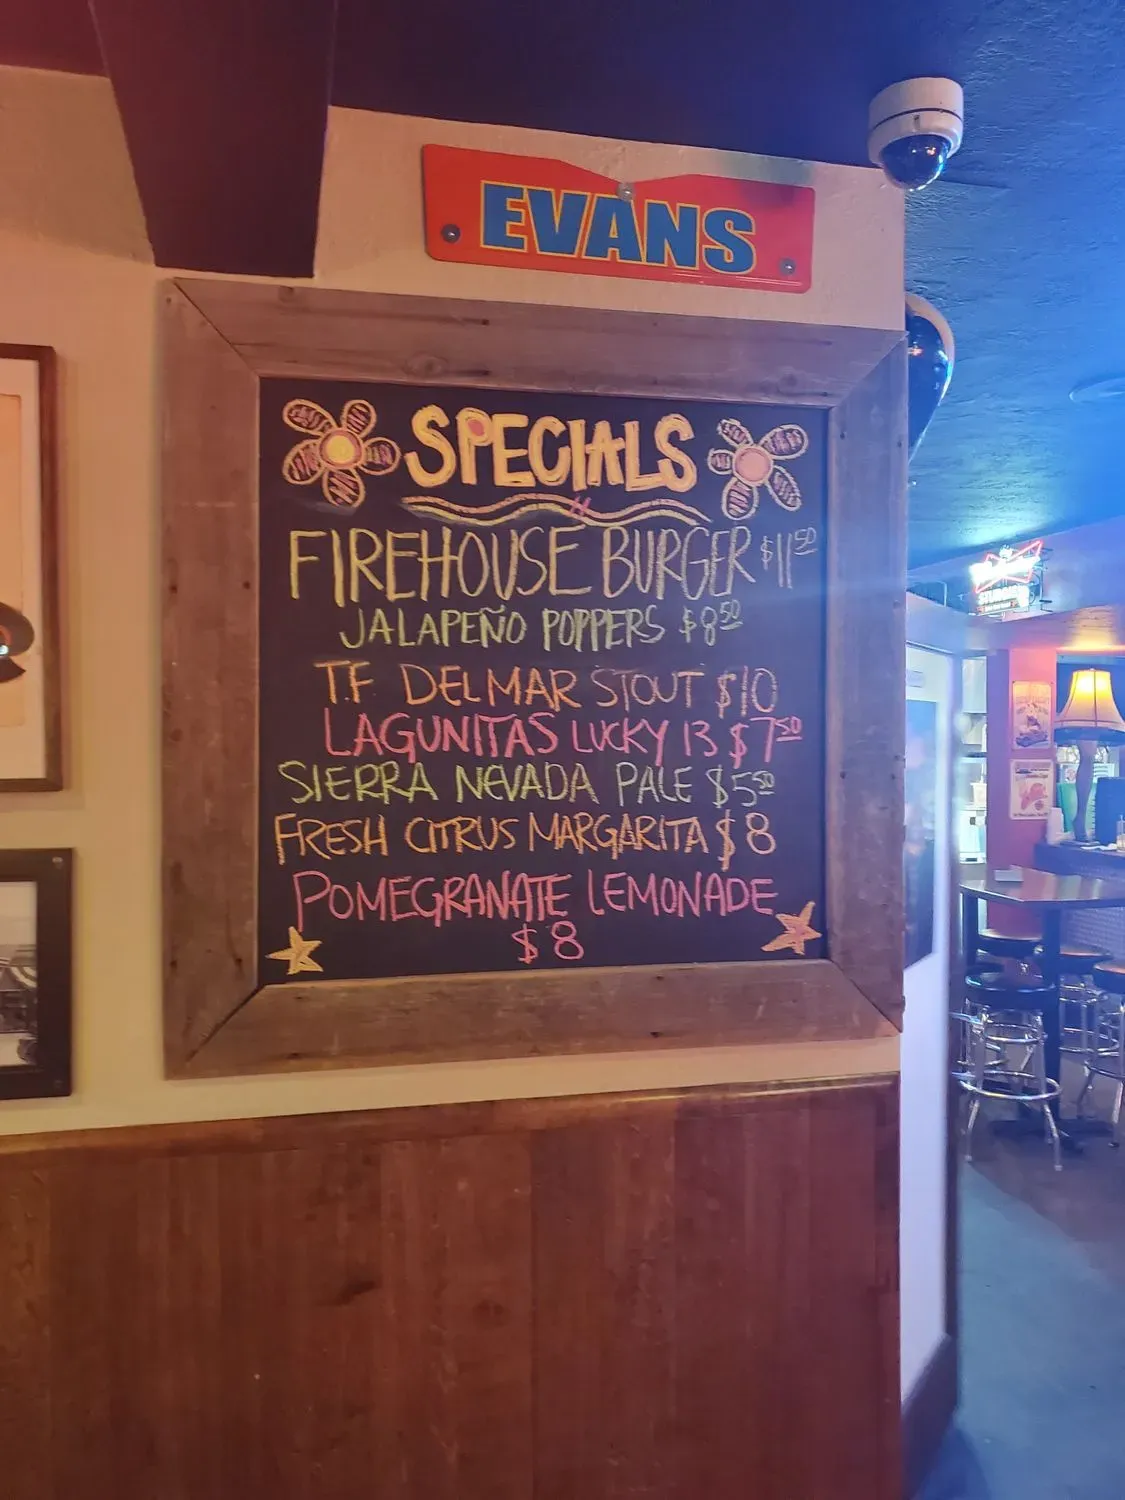 EVANS
SPECIALS
FIREHOUSE BURGER $11 50
JALAPEÑO POPPERS $8 50
T.F DEL MAR STOUT $10
LAGUNITAS LUCKY 13 $7 50
SIERRA NEVADA PALE $5 50
FRESH CITRUS MARGARITA $8
POMEGRANATE LEMONADE
$8